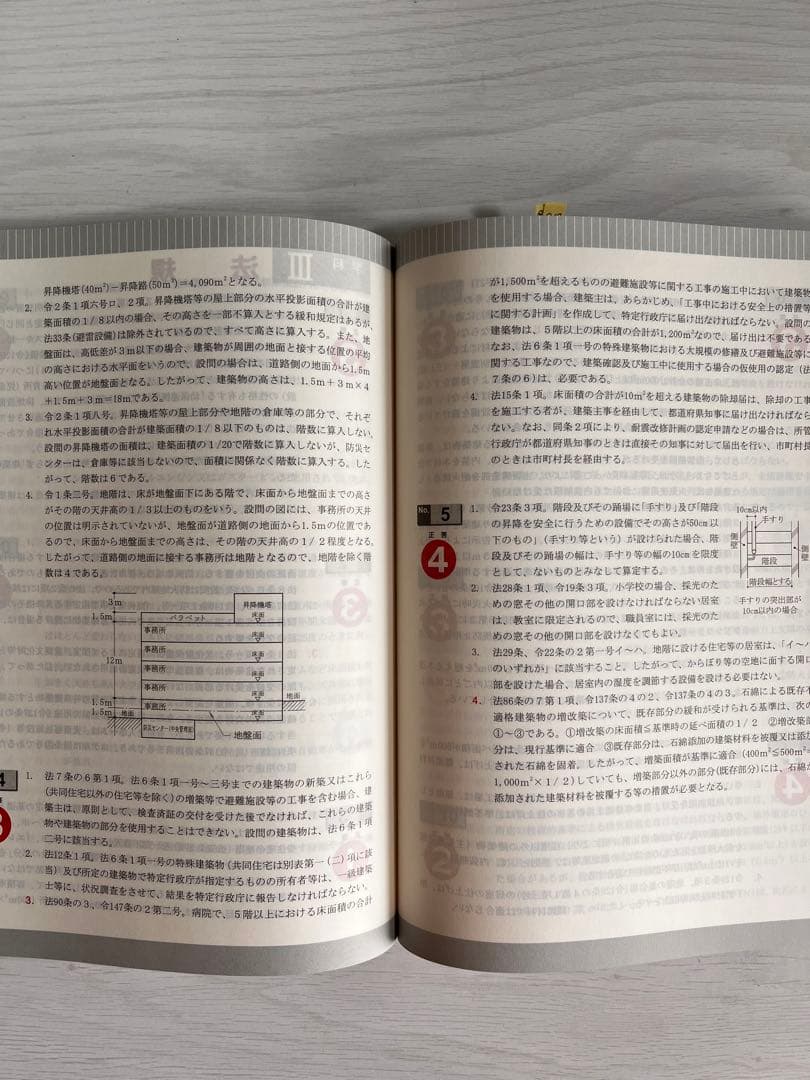 昇降機塔(40m²)−昇降路(50m²)=4,090m²となる。
2. 令2条1項六号ロ、2項。昇降機塔等の屋上部分の水平投影面積の合計が建
築面積の1/8以内の場合、その高さを一部不算入とする緩和規定はあるが、
法33条(避雷設備)は除外されているので、すべて高さに算入する。また、地
盤面は、高低差が3m以下の場合、建築物が周囲の地面と接する位置の平均
の高さにおける水平面をいうので、設問の場合は、道路側の地面から1.5m
高い位置が地盤面となる。したがって、建築物の高さは、1.5m+3m×4
+1.5m+3m=18mである。
3. 令2条1項八号。昇降機塔等の屋上部分や地階の倉庫等の部分で、それぞ
れ水平投影面積の合計が建築面積の1/8以下のものは、階数に算入しない。
設問の昇降機塔の面積は、建築面積の1/20で階数に算入しないが、防災セ
ンターは、倉庫等に該当しないので、面積に関係なく階数に算入する。した
がって、階数は6である。
4. 令1条二号。地階は、床が地盤面下にある階で、床面から地盤面までの高さ
がその階の天井の高さの1/3以上のものをいう。設問の図には、事務所の天井
の位置は明示されていないが、地盤面が道路側の地面から1.5mの位置であ
るので、床面から地盤面までの高さは、その階の天井高の1/2程度となる。
したがって、道路側の地面に接する事務所は地階となるので、地階を除く階
数は4である。
3m
昇降機塔
1.5m
パラペット
床面
事務所
床面
事務所
床面
12m
事務所
床面
事務所
床面
1.5m
事務所
床面
地面
1.5m
地面
防災センター(中央管理室)
地盤面
4
1. 法7条の6第1項。法6条1項一号〜三号までの建築物の新築又はこれら
(共同住宅以外の住宅等を除く)の増築等で避難施設等の工事を含む場合、建
築主は、原則として、検査済証の交付を受けた後でなければ、これらの建築
物や建築物の部分を使用することはできない。設問の建築物は、法6条1項
二号に該当する。
2. 法12条1項。法6条1項一号の特殊建築物(共同住宅は別表第一(二)項に該
当)及び所定の建築物で特定行政庁が指定するものの所有者等は、一級建築
士等に、状況調査をさせて、結果を特定行政庁に報告しなければならない。
3. 法90条の3、令147条の2第二号。病院で、5階以上における床面積の合計
が1,500m²を超えるものの避難施設等に関する工事の施工中において建築物
を使用する場合、建築主は、あらかじめ、「工事中における安全上の措置等
に関する計画」を作成して、特定行政庁に届け出なければならない。設問の
建築物は、5階以上の床面積の合計が1,200m²なので、届け出は不要である。
なお、法6条1項一号の特殊建築物における大規模の修繕及び避難施設等に
関する工事なので、建築確認及び施工中に使用する場合の仮使用の認定(法
7条の6)は、必要である。
4. 法15条1項。床面積の合計が10m²を超える建築物の除却届は、除却の工事
を施工する者が、建築主事を経由して、都道府県知事に届け出なければなら
ない。なお、同条2項により、耐震改修計画の認定申請などの場合は、所管
行政庁が都道府県知事のときは直接その知事に対して届出を行い、市町村長
のときは市町村長を経由する。
No. 5
正答
4
1. 令23条3項。階段及びその踊場に「手すり」及び「階段
の昇降を安全に行うための設備でその高さが50cm以
下のもの」(手すり等という)が設けられた場合、階
段及びその踊場の幅は、手すり等の幅の10cmを限度
として、ないものとみなして算定する。
10cm以内
手すり
側壁
側壁
階段
階段幅とする
手すりの突出部が
10cm以内の場合
2. 法28条1項、令19条3項。小学校の場合、採光のた
めの窓その他の開口部を設けなければならない居室
は、教室に限定されるので、職員室には、採光のため
の窓その他の開口部を設けなくてもよい。
3. 法29条、令22条の2第一号イ〜ハ。地階に設ける住宅等の居室は、「イ〜ハ
のいずれか」に該当すること。したがって、からぼり等の空地に面する開口
部を設けた場合、居室内の湿度を調節する設備を設ける必要はない。
4. 法86条の7第1項、令137条の4の2、令137条の4の3。石綿による既存不
適格建築物の増改築について、既存部分の緩和が受けられる基準は、次の
①〜③である。①増改築の床面積≦基準時の延べ面積の1/2 ②増改築部
分は、現行基準に適合 ③既存部分は、石綿添加の建築材料を被覆又は添加
された石綿を固着。したがって、増築面積が基準に適合(400m²≦500m²=
1,000m²×1/2)していても、増築部分以外の部分(既存部分)には、石綿が
添加された建築材料を被覆する等の措置が必要となる。